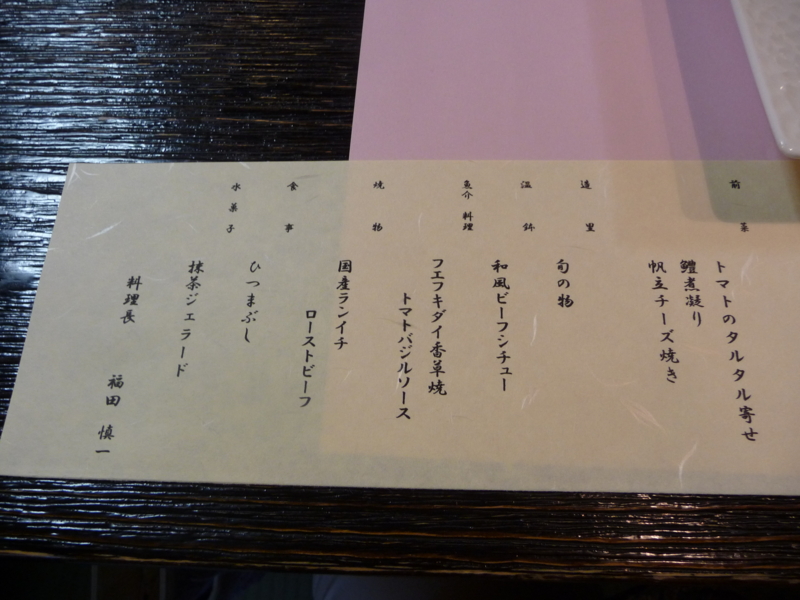 前菜
トマトのタルタル寄せ
鱧煮凝り
帆立チーズ焼き
造里
旬の物
温鉢
和風ビーフシチュー
魚介料理
フエフキダイ香草焼
トマトバジルソース
焼物
国産ランイチ
ローストビーフ
食事
ひつまぶし
水菓子
抹茶ジェラード
料理長
福田 慎一